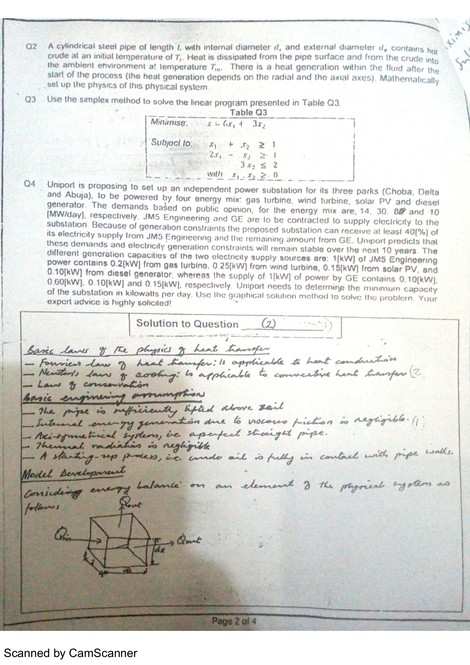 Q2 A cylindrical steel pipe of length L with internal diameter dᵢ and external diameter dₒ contains hot
crude at an initial temperature of Tᵢ. Heat is dissipated from the pipe surface and from the crude into
the ambient environment at temperature T∞. There is a heat generation within the fluid after the
start of the process (the heat generation depends on the radial and the axial axes). Mathematically
set up the physics of this physical system.
Q3 Use the simplex method to solve the linear program presented in Table Q3.
Table Q3
Minimise: z = 6x₁ + 3x₂
Subject to: x₁ + x₂ ≥ 1
2x₁ - x₂ ≥ 1
3x₂ ≤ 2
with x₁, x₂ ≥ 0
Q4 Uniport is proposing to set up an independent power substation for its three parks (Choba, Delta
and Abuja), to be powered by four energy mix: gas turbine, wind turbine, solar PV and diesel
generator. The demands based on public opinion, for the energy mix are, 14, 30, and 10
[MW/day], respectively. JM5 Engineering and GE are to be contracted to supply electricity to the
substation. Because of generation constraints the proposed substation can receive at least 40[%] of
its electricity supply from JM5 Engineering and the remaining amount from GE. Uniport predicts that
these demands and electricity generation constraints will remain stable over the next 10 years. The
different generation capacities of the two electricity supply sources are: 1[kW] of JM5 Engineering
power contains 0.2[kW] from gas turbine, 0.25[kW] from wind turbine, 0.15[kW] from solar PV, and
0.10[kW] from diesel generator, whereas the supply of 1[kW] of power by GE contains 0.10[kW],
0.60[kW], 0.10[kW] and 0.15[kW], respectively. Uniport needs to determine the minimum capacity
of the substation in kilowatts per day. Use the graphical solution method to solve the problem. Your
expert advice is highly solicited!
Solution to Question (2)
Basic laws of the physics of heat transfer
- Fourier's law of heat transfer; is applicable to heat conduction
- Newton's law of cooling; is applicable to convective heat transfer (2
- Law of conservation
Basic engineering assumption
- The pipe is sufficiently lifted above soil
- Internal energy generation due to viscous friction is negligible. (1)
- Axi-symmetrical system, i.e. a perfect straight pipe.
- Thermal radiation is negligible
- A starting-up process, i.e. crude oil is fully in contact with pipe walls.
Model Development
Considering energy balance on an element of the physical system as
follows
Qout
Qin
Qout
dx
Page 2 of 4
Scanned by CamScanner